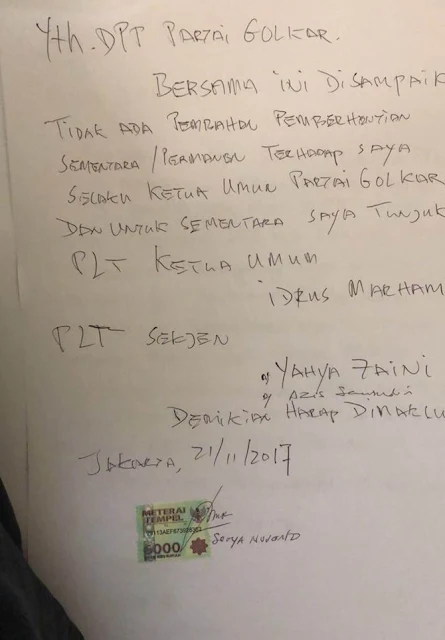 Yth. DPP PARTAI GOLKAR.
BERSAMA iNi DiSAMPAIK
TIDAK ADA PEMBAHAN PEMBERHENTIAN
SEMENTARA / PERMANEN TERHADAP SAYA
SELAKU KETUA UMUM PARTAI GOLKAR
DAN UNTUK SEMENTARA SAYA TUNJUK
PLT KETUA UMUM
iDRUS MARHAM
PLT SEKJEN
YAHYA ZAINI
AZIS
DEMIKIAN HARAP DIMAKLU
JAKARTA, 21/11/2017
METERAI
TEMPEL
6000
SETYA NOVANTO